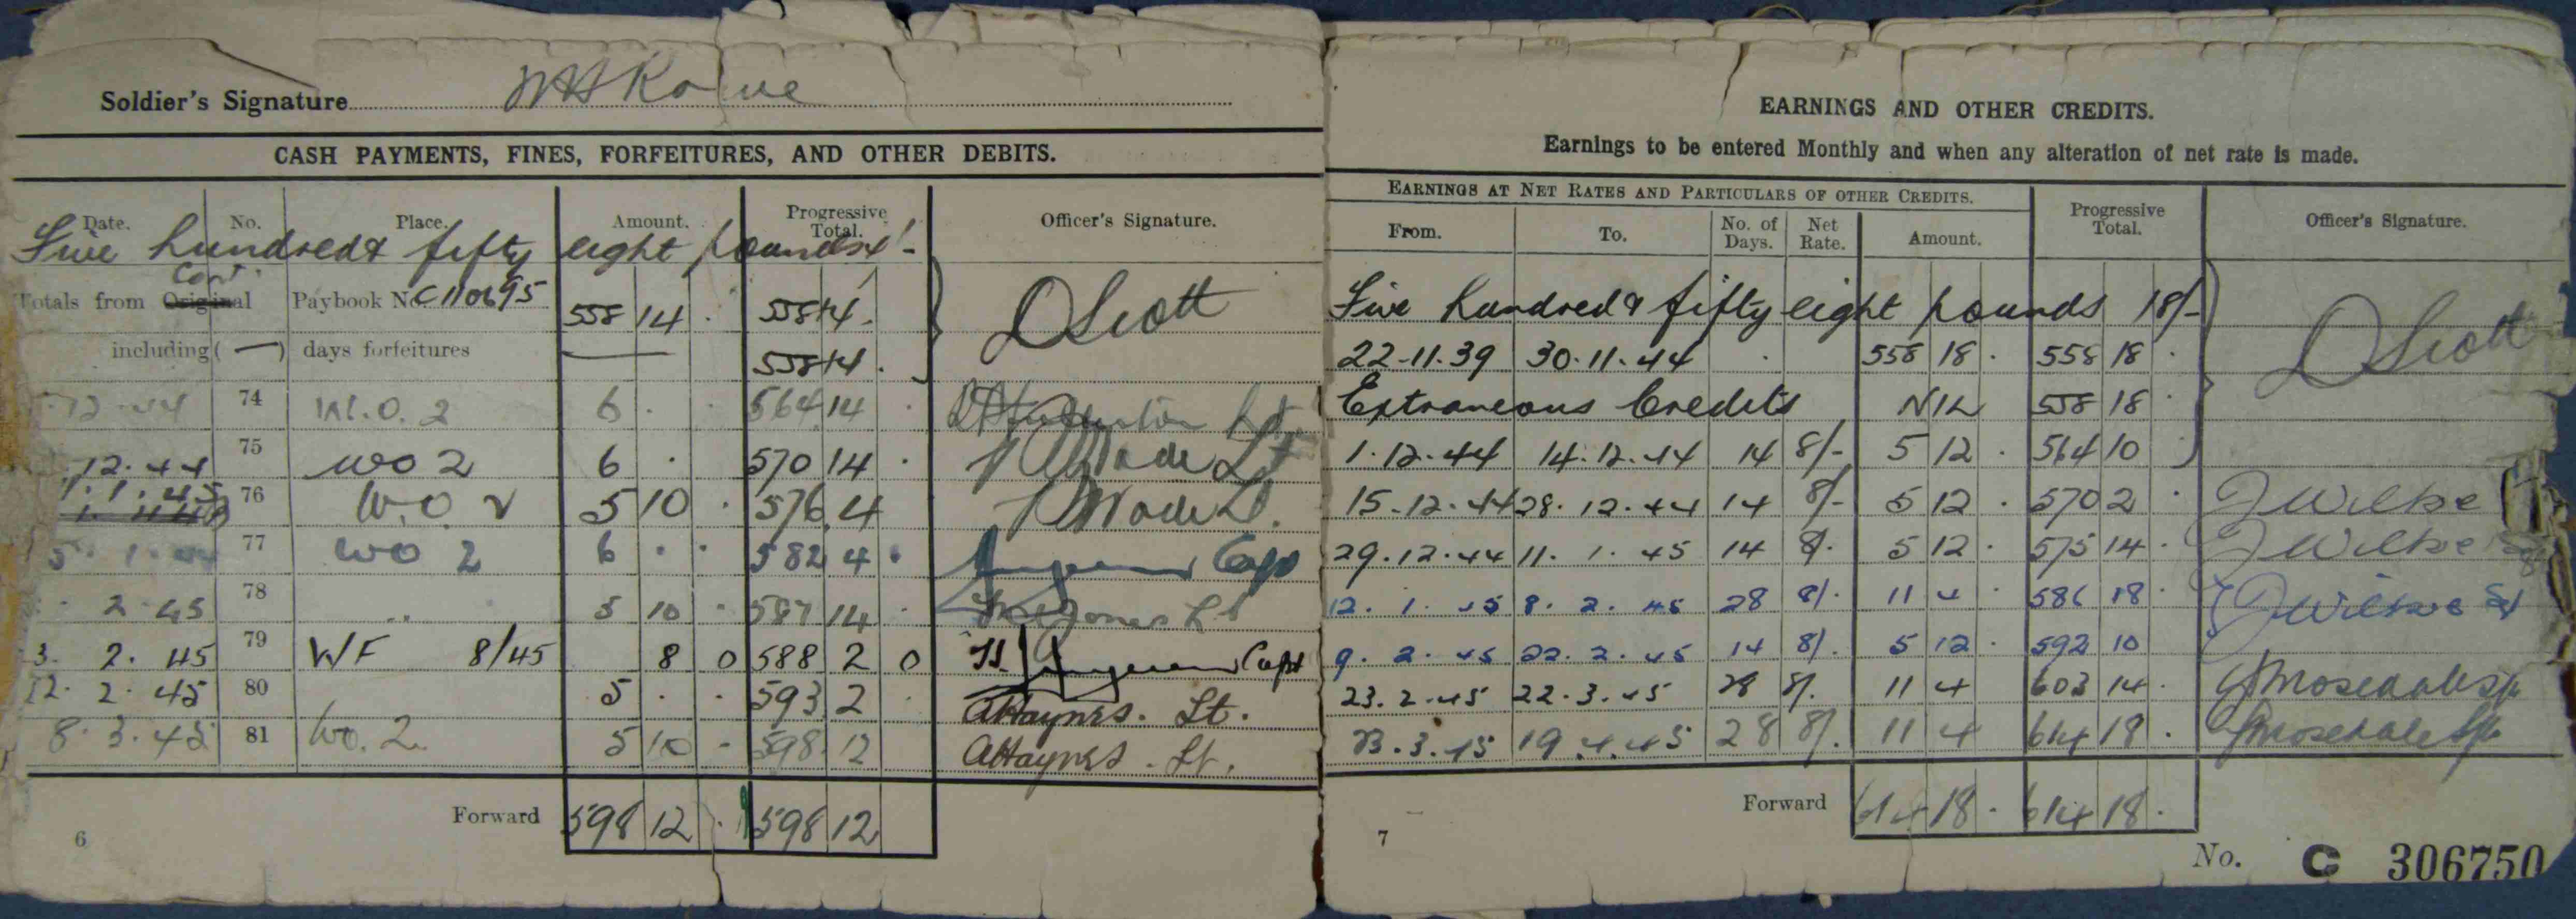 Soldier's Signature
CASH PAYMENTS, FINES, FORFEITURES, AND OTHER DEBITS.
Date. No. Place. Amount. Progressive Total. Officer's Signature.
Five hundred & fifty eight pounds
Cont
Totals from Original Paybook No. C110695 558 14 . 558 14 . D Scott
including ( — ) days forfeitures 558 14 .
12 . 44 74 W.O. 2 6 . . 564 14 . Lt
12 . 44 75 WO 2 6 . 570 14 . Wade Lt
1 . 1 . 45 76 W.O. 2 5 10 . 576 4 Wade Lt.
5 . 1 . 77 WO 2 6 . . 582 4 . Capt
2 . 45 78 .. 5 10 . 587 14 . Jones Lt
3 . 2 . 45 79 W/F 8/45 8 0 588 2 0 Capt
12 . 2 . 45 80 5 . . 593 2 . A Haynes . Lt .
8 . 3 . 45 81 WO. 2. 5 10 - 598 12 A Haynes . Lt .
Forward 598 12 . 598 12
6
EARNINGS AND OTHER CREDITS.
Earnings to be entered Monthly and when any alteration of net rate is made.
EARNINGS AT NET RATES AND PARTICULARS OF OTHER CREDITS.
From. To. No. of Days. Net Rate. Amount. Progressive Total. Officer's Signature.
Five hundred & fifty eight pounds 18/-
22-11.39 30.11.44 . 558 18 . 558 18 . D Scott
Extraneous Credits NIL 558 18 .
1.12.44 14.12.44 14 8/- 5 12 . 564 10
15.12.44 28.12.44 14 8/- 5 12 . 570 2 . J Wilkie
29.12.44 11. 1. 45 14 8/. 5 12 . 575 14 . J Wilkie
12. 1. 45 8. 2. 45 28 8/. 11 4 . 586 18 . J Wilkie
9. 2. 45 22. 2. 45 14 8/. 5 12 . 592 10
23.2.45 22.3.45 28 8/. 11 4 603 14 .
23.3.45 19.4.45 28 8/. 11 4 614 18 .
Forward 614 18 . 614 18 .
7
No. C 306750